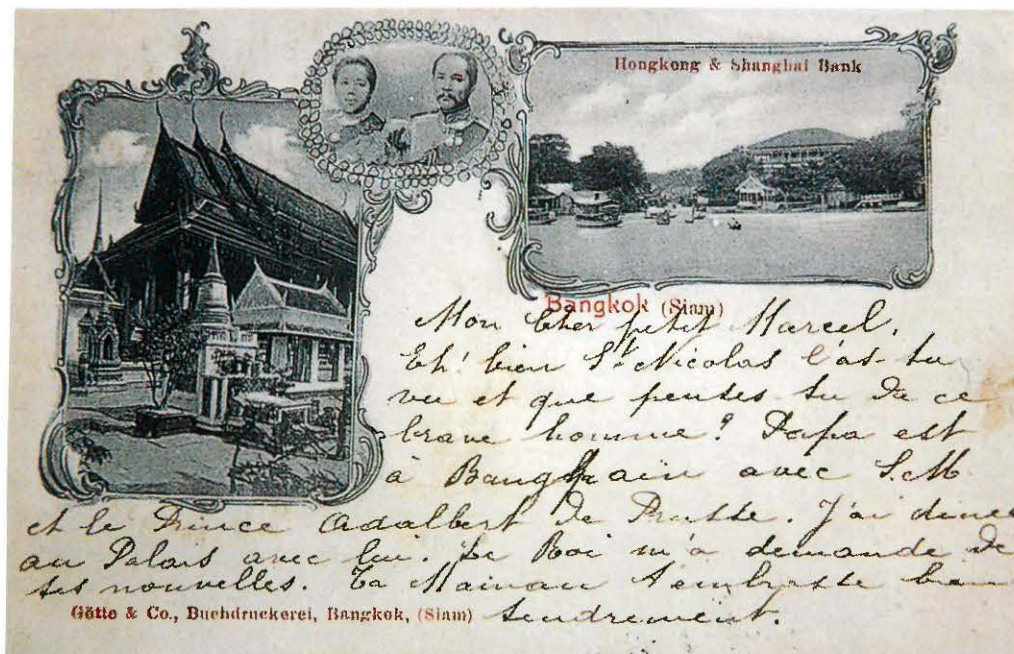 Hongkong & Shanghai Bank
Bangkok (Siam)
Mon cher petit Marcel,
Eh! bien St Nicolas l'as-tu
vu et que penses tu de ce
brave homme? Papa est
à Bang Pain avec S.M
et le Prince Adalbert de Prusse. J'ai diner
au Palais avec lui. Le Roi m'a demande de
tes nouvelles. Ta Maman t'embrasse bien
tendrement.
Götte & Co., Buchdruckerei, Bangkok, (Siam)